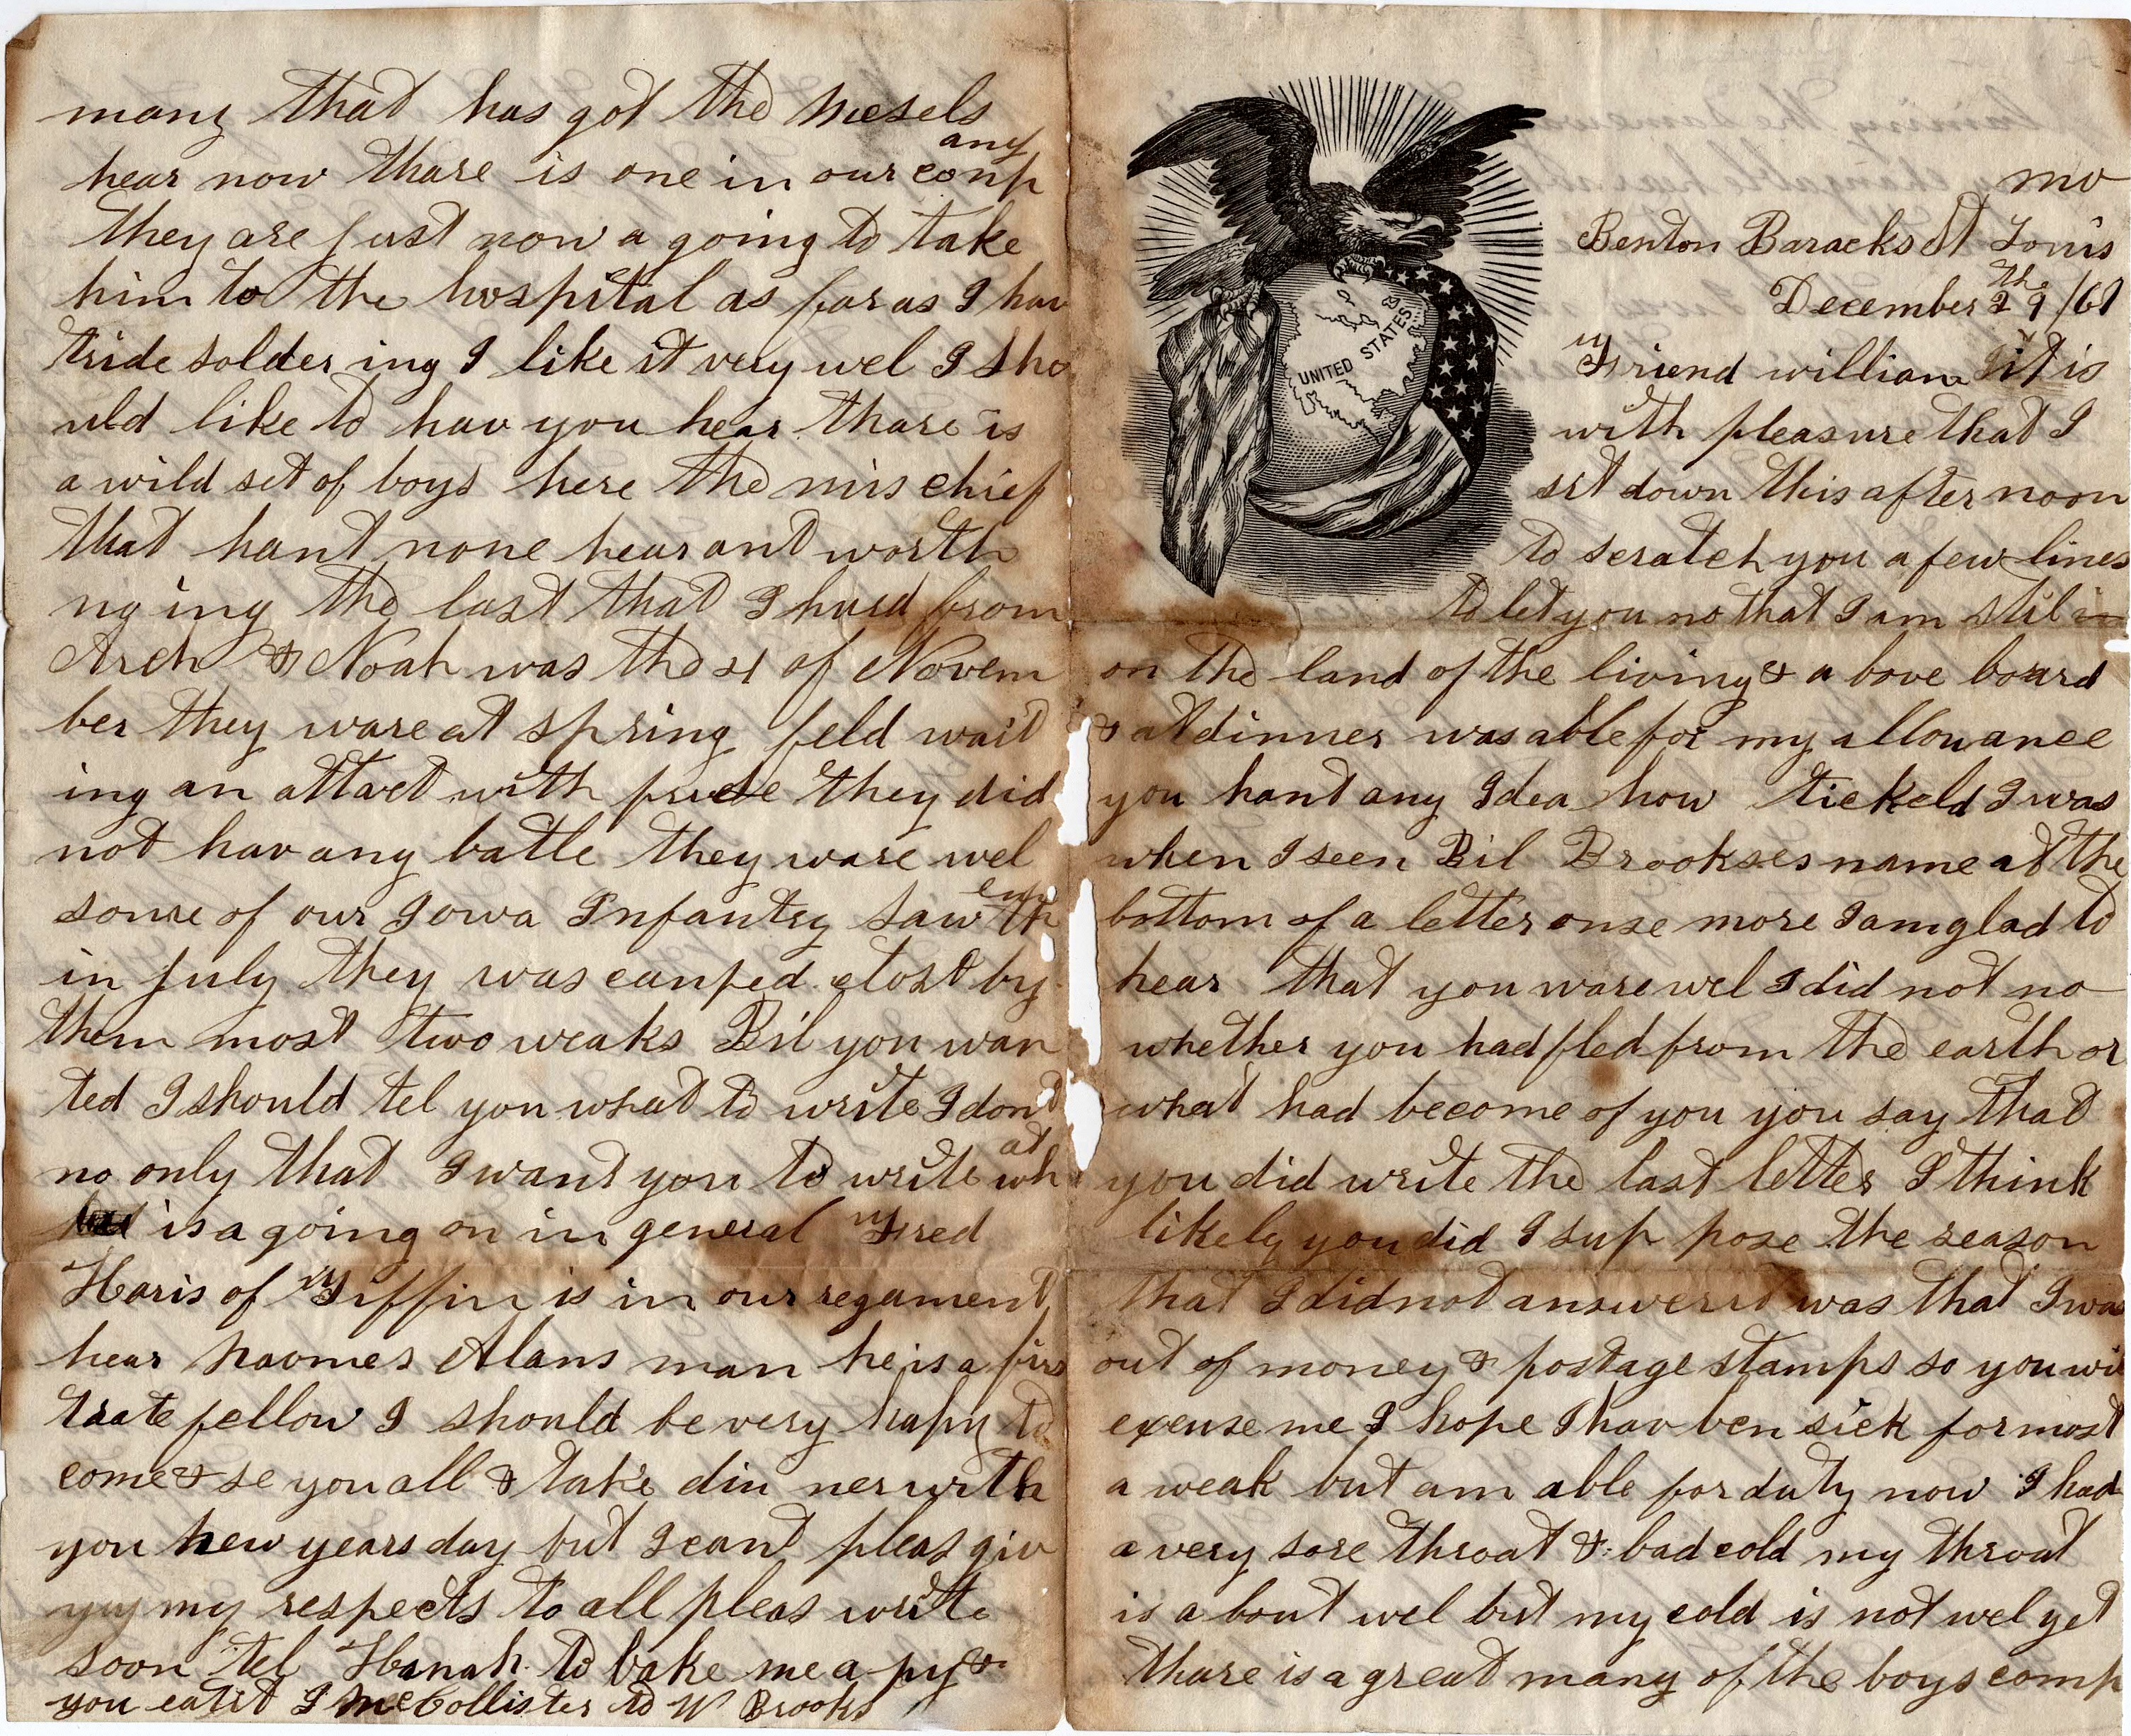 mo
Benton Baracks St Louis
December 29th /61
Friend william it is
with pleasure that I
sit down this after noon
to scratch you a few lines
to let you no that I am stil in
on the land of the living & a bove board
& at dinner was able for my allowance
you hant any Idea how tickeld I was
when I seen Bil Brookses name at the
bottom of a letter onse more I am glad to
hear that you ware wel I did not no
whether you had fled from the earth or
what had become of you you say that
you did write the last letter I think
likely you did I sup pose the season
that I did not answer it was that I was
out of money & postage stamps so you wil
excuse me I hope I hav ben sick for most
a weak but am able for duty now I had
a very sore throat & bad cold my throat
is a bout wel but my cold is not wel yet
thare is a great many of the boys comp
UNITED STATES
many that has got the mesels
hear now thare is one in our company
they are just now a going to take
him to the hospital as far as I hav
tride solder ing I like it very wel I sho
uld like to hav you hear thare is
a wild set of boys here the mis chief
that hant none hear ant worth
ng ing the last that I hurd from
Arch & Noah was the 21 of Novem
ber they ware at spring feld wait
ing an attact with they did
not hav any batle they ware wel
some of our Iowa Infantry saw them
in july they was camped clost by
them most two weaks Bil you wan
ted I should tel you what to write I dont
no only that I want you to write what
is a going on in general Fred
Haris of Tiffin is in our regament
hear Alans man he is a firs
t rate fellow I should be very hapy to
come & se you all & take din ner with
you new years day but I cant pleas giv
my respects to all pleas write
soon tel Hanah to bake me a py &
you eat it I McCollister to W Brooks